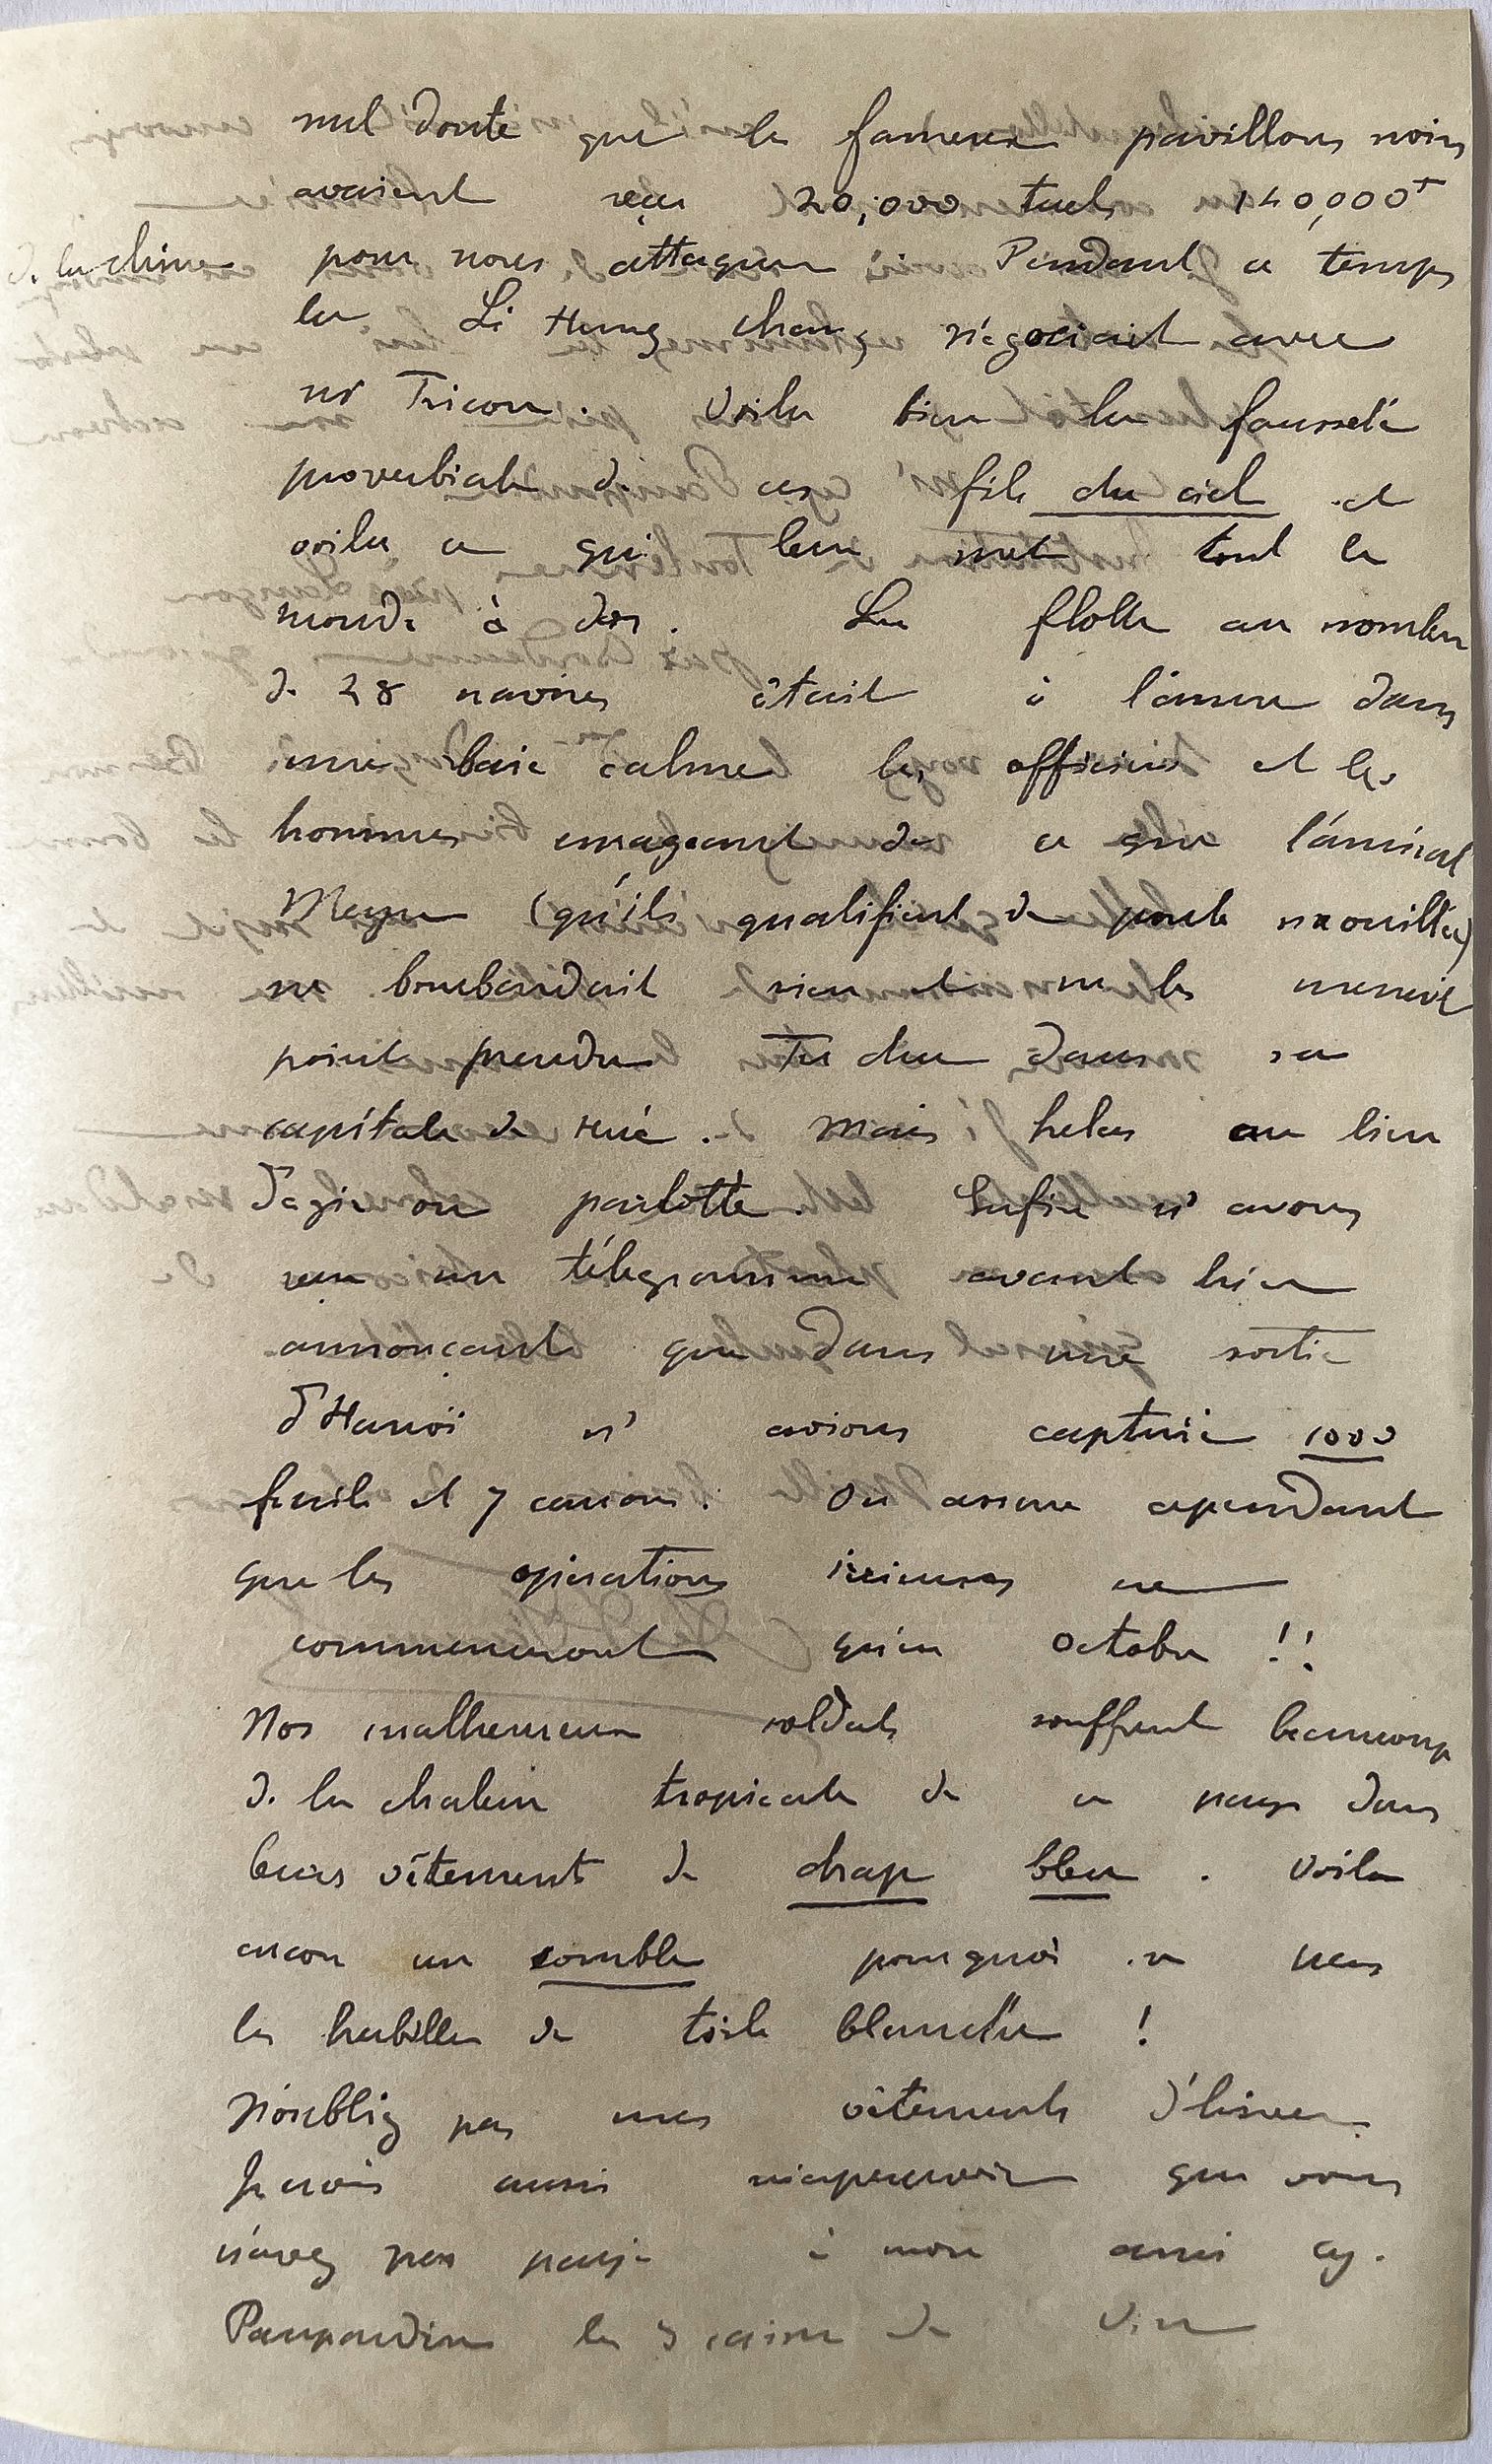 nul doute que les fameux pavillons noirs
avaient reçu 20,000 taels 140,000f
de la chine pour nous attaquer. Pendant ce temps
le Li Hung chang négociait avec
mr Tricou. Voila bien la fausseté
proverbiale de ces fils du ciel et
voila ce qui leur met tout le
monde à dos. La flotte au nombre
de 28 navires était à l'ancre dans
une baie calme les officiers et les
hommes enrageant de ce que l'amiral
Meyer (qu'ils qualifient de poule mouillée)
ne bombardait rien et ne les menait
point prendre Tu duc dans sa
capitale de Hué. Mais helas au lieu
d'agir on parlotte. Enfin n' avons
reçu un télégramme avant hier
annonçant que dans une sortie
d'Hanoï n' avions capturé 1000
fusils et 7 canons. On assure cependant
que les opérations sérieuses ne
commenceront qu'en octobre !!
Nos malheureux soldats souffrent beaucoup
de la chaleur tropicale de ce pays dans
leurs vêtements de drap bleu. Voila
encore un comble pourquoi ne pas
les habiller de toile blanche !
N'oubliez pas mes vêtements d'hiver.
Je crois aussi m'apercevoir que vous
n'avez pas payé à mon ami
Paupardin les 3 caisses de vin